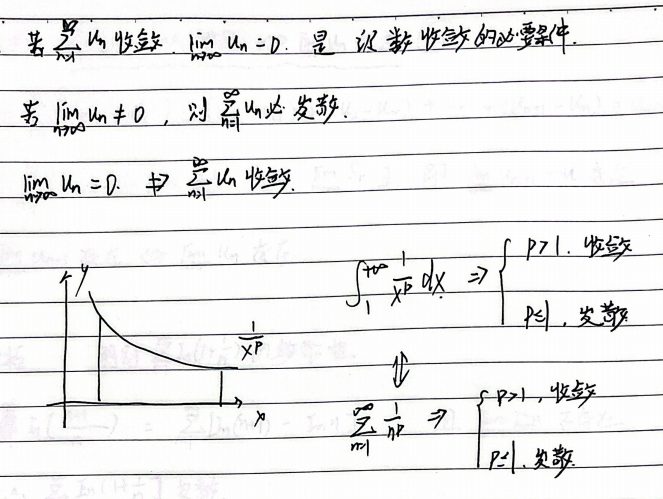 若 ∑_{n=1}^{∞} Un 收敛. lim_{n→∞} Un = 0. 是 级数收敛的必要条件.
若 lim_{n→∞} Un ≠ 0, 则 ∑_{n=1}^{∞} Un 必发散.
lim_{n→∞} Un = 0. ⇏ ∑_{n=1}^{∞} Un 收敛.
y
1/x^p
x
∫_1^{+∞} 1/x^p dx ⇒ { p>1. 收敛
p≤1, 发散.
⇕
∑_{n=1}^{∞} 1/n^p ⇒ { p>1, 收敛
p≤1. 发散.